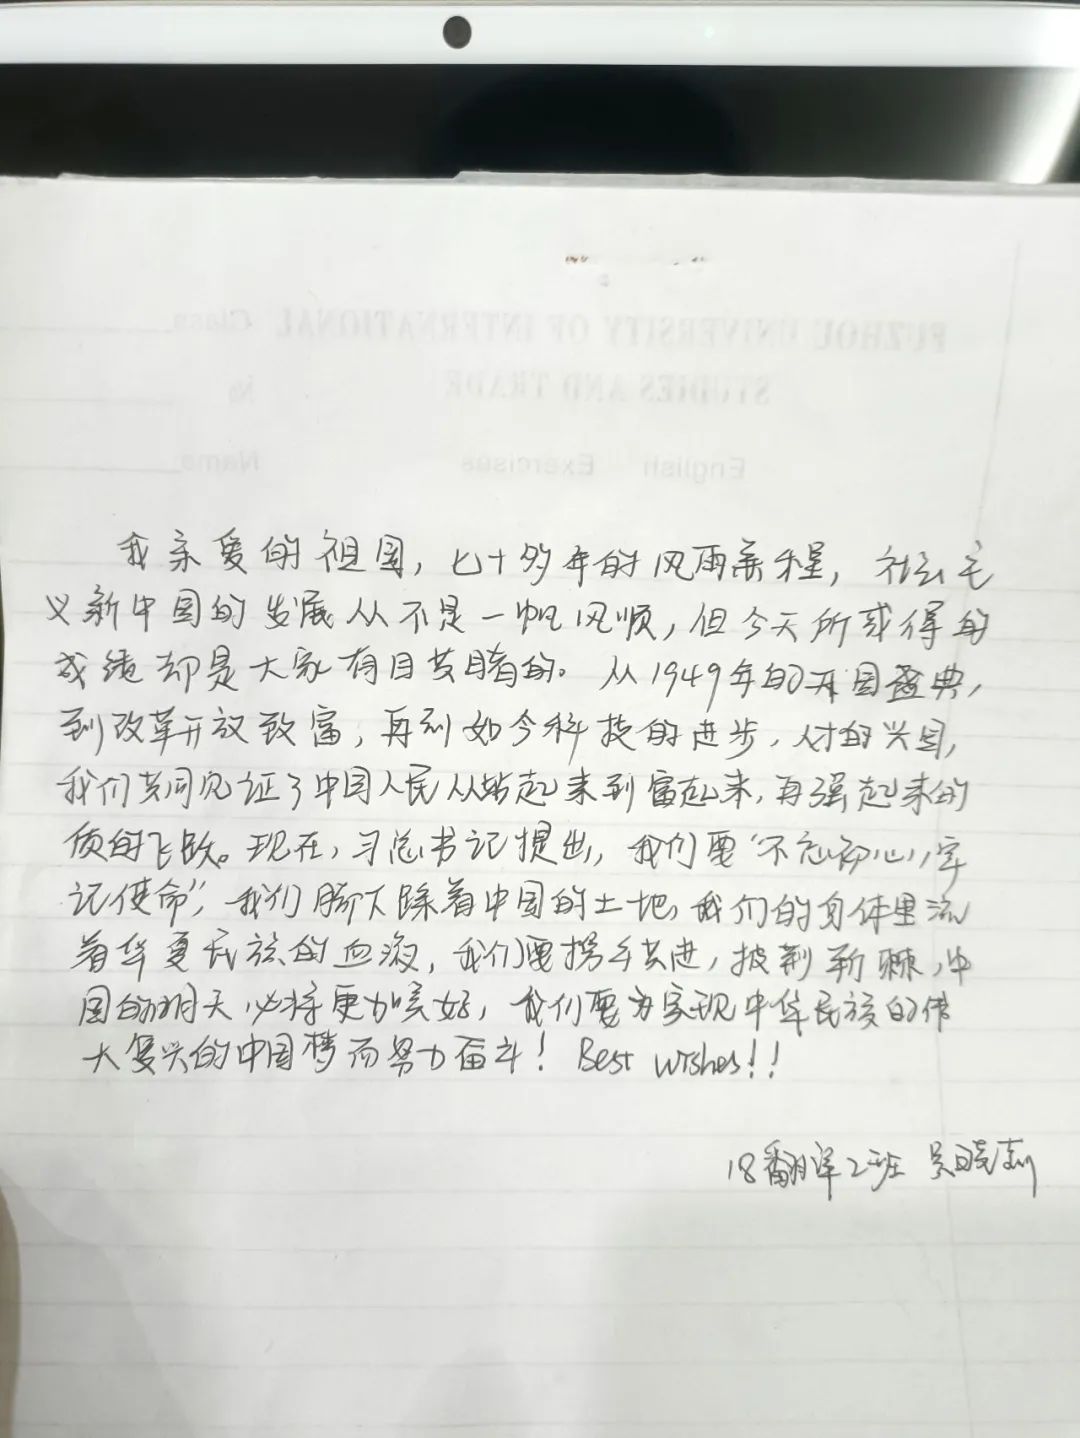 FUZHOU UNIVERSITY OF INTERNATIONAL Class
STUDIES AND TRADE №
English Exercises Name
我亲爱的祖国，七十多年的风雨兼程，社会主
义新中国的发展从不是一帆风顺，但今天所获得的
成绩却是大家有目共睹的。从1949年的开国盛典，
到改革开放致富，再到如今科技的进步，人才的兴国，
我们共同见证了中国人民从站起来到富起来，再强起来的
质的飞跃。现在，习总书记提出，我们要“不忘初心，牢
记使命”，我们脚下踩着中国的土地，我们的身体里流
着华夏民族的血液，我们要携手共进，披荆斩棘，中
国的明天必将更加美好，我们要为实现中华民族的伟
大复兴的中国梦而努力奋斗！Best wishes!!
18翻译2班 吴晓